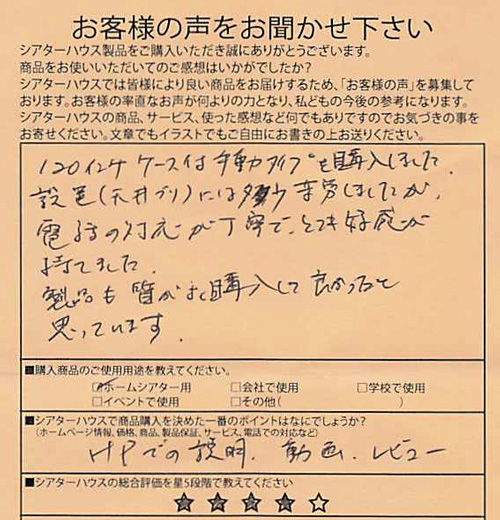 お客様の声をお聞かせ下さい
シアターハウス製品をご購入いただき誠にありがとうございます。
商品をお使いいただいてのご感想はいかがでしたか?
シアターハウスでは皆様により良い商品をお届けするため、「お客様の声」を募集して
おります。お客様の率直なお声が何よりの力となり、私どもの今後の参考になります。
シアターハウスの商品、サービス、使った感想など何でもありですのでお気づきの事を
お寄せください。文章でもイラストでもご自由にお書きの上お送りください。
120インチ ケース付 手動タイプを購入しました。
設置(天井ヅリ)には多少苦労しましたが、
電話の対応が丁寧で、とても好感が
持てました。
製品も質がよく購入して良かったと
思っています。
■購入商品のご使用用途を教えてください。
□ホームシアター用 □会社で使用 □学校で使用
□イベントで使用 □その他( )
■シアターハウスで商品購入を決めた一番のポイントはなにでしょうか?
(ホームページ情報、価格、商品、製品保証、サービス、電話での対応など)
HPでの説明、動画、レビュー
■シアターハウスの総合評価を星5段階で教えてください
★★★★☆